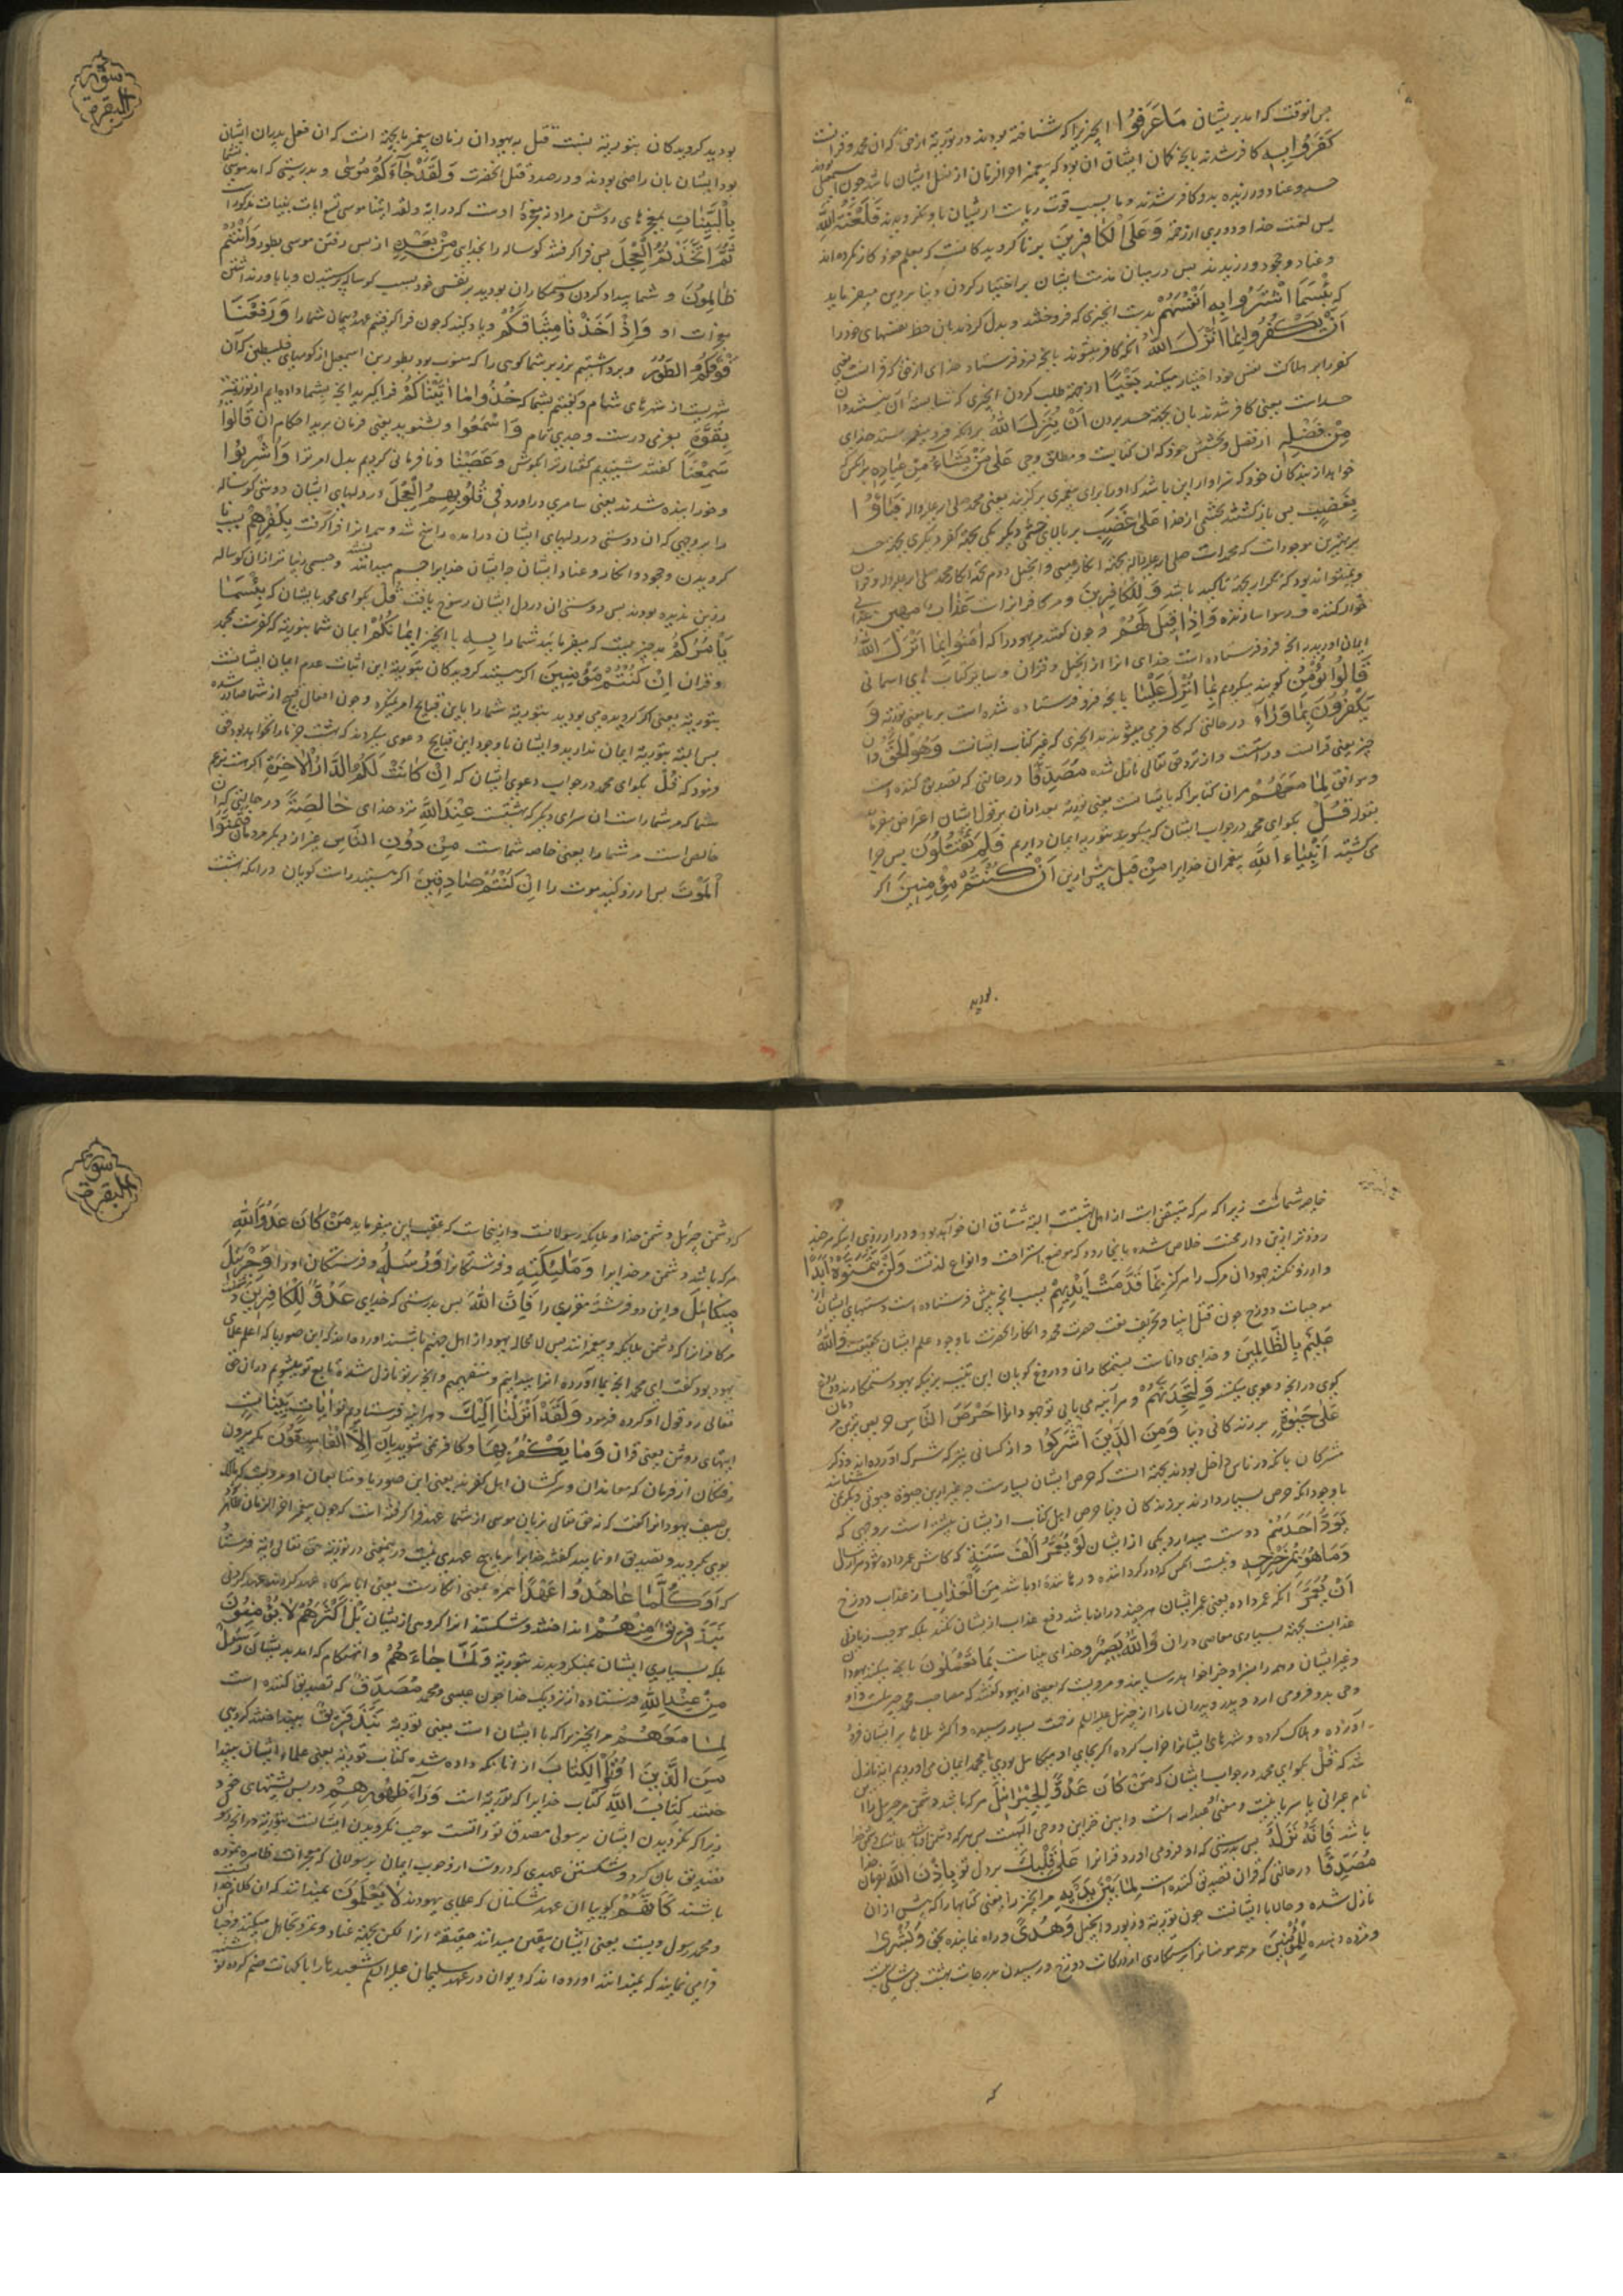 پس انوقت که امد بدیشان مَا عَرَفُوا انچیزیرا که شناخته بودند در توریة از حق که ان محمد و قرانست
كَفَرُوا بِه کافر شدند بانچه کمان ایشان ان بود که پیغمبر اخرالزمان از نسل ایشان باشد چون
حسد و عناد ورزیده بدو کافر شدند و ما بسبب قوت ریاست ایشان باو نکرویدند فَلَعْنَةُ اللَّهِ
پس لعنت خدا و دوری از رحمة عَلَى الْكَافِرِينَ بر ناکرویدکانست که بعلم خود کار نکرده اند
و عناد و جحود ورزیدند پس در بیان مذمت ایشان بر اختیار کردن دنیا بر دین میفرماید
که بِئْسَمَا اشْتَرَوا بِهِ أَنْفُسَهُمْ بدست انچیزی که فروختند و بدل کردند بان حظ نفسهای خود را
أَنْ يَكْفُرُوا بِمَا أَنْزَلَ اللَّهُ انکه کافر میشوند بانچه فرو فرستاد خدای از حق که قرانست یعنی
کفر را بر هلاکت نفس خود اختیار میکنند بَغْيًا از جهة طلب کردن انچیزی که شایسته ان نیستند و ان
حسد است یعنی کافر شدند بان بجهة حسد بردن أَنْ يُنَزِّلَ اللَّهُ برانکه فرو میفرستد خدای
مِنْ فَضْلِهِ از فضل و بخشش خود که ان کتابست و مطلق وحی عَلَى مَنْ يَشَاءُ مِنْ عِبَادِهِ بر انکس که
خواهد از بندکان خود که سزاوار این باشد که او را برای پیغمبری برکزیند یعنی محمد صلی الله علیه واله فَبَاؤُا
بِغَضَبٍ پس بازکشتند بخشمی از خدا عَلَى غَضَبٍ بر بالای خشمی دیکر یکی بجهة کفر و دیکری بجهة حسد
بر بهترین موجودات که محمد است صلی الله علیه واله بجهة انکار عیسی و انجیل دوم بجهة انکار محمد صلی الله علیه واله و قران
و میتواند بود که تکرار بجهة تاکید باشد وَ لِلْكَافِرِينَ و مر کافرانراست عَذَابٌ مُهِينٌ عذابی
خوار کننده و رسوا سازنده وَ إِذَا قِيلَ لَهُمْ و چون کفته شد مر یهود را که آمِنُوا بِمَا أَنْزَلَ اللَّهُ
ایمان اورید بدانچه فرو فرستاده است خدای انرا از انجیل و قران و سایر کتاب های اسمانی
قَالُوا نُؤْمِنُ کویند میکرویم بِمَا أُنْزِلَ عَلَيْنَا بانچه فرو فرستاده شده است بر ما یعنی توریة وَ
يَكْفُرُونَ بِمَا وَرَاءَهُ در حالتی که کافر میشوند بانچیزی که غیر کتاب ایشانست وَهُوَ الْحَقُّ و ان
چیز یعنی قرانست و راست و از نزد حق تعالی نازل شده مُصَدِّقًا در حالتی که تصدیق کننده است
و موافق لِمَا مَعَهُمْ مران کتابرا که با ایشانست یعنی توریة بعد ازان بر قول ایشان اعتراض میفرماید
بقوله قُلْ بکو ای محمد در جواب ایشان که میکویند بتوریة ایمان داریم فَلِمَ تَقْتُلُونَ پس چرا
می کشتید أَنْبِيَاءَ اللَّهِ پیغمبران خدایرا مِنْ قَبْلُ پیش ازین إِنْ كُنْتُمْ مُؤْمِنِينَ اکر
بودید
سورة
البقرة
بودید کرویدکان بتوریة نسبت قتل به یهودان زمان پیغمبر بجهة انست که ان فعل پدران ایشان
بود و ایشان بان راضی بودند و در صدد قتل انحضرت وَلَقَدْ جَاءَكُمْ مُوسَى و بدرستی که امد بشما موسی
بِالْبَيِّنَاتِ بمعجزهای روشن مراد نه معجزهٔ اوست که در ایة ولقد اتینا موسی تسع ایات بینات مذکور است
ثُمَّ اتَّخَذْتُمُ الْعِجْلَ پس فرا کرفتید کوساله را بخدای مِنْ بَعْدِهِ از پس رفتن موسی بطور وَأَنْتُمْ
ظَالِمُونَ و شما بیداد کردن و ستمکاران بودید بر نفس خود بسبب کوساله پرستیدن و یا باور نداشتن
معجزات او وَ إِذْ أَخَذْنَا مِيثَاقَكُمْ و یاد کنید که چون فرا کرفتیم عهد و پیمان شما را وَرَفَعْنَا
فَوْقَكُمُ الطُّورَ و برداشتیم بر زبر شما کوهی را که منسوب بود بطور بن اسمعیل از کوههای فلسطین که آن
شهریست از شهرهای شام و کفتیم بشما که خُذُوا مَا آتَيْنَاكُمْ فرا کیرید انچه بشما داده ایم از توریة
بِقُوَّةٍ بعزمی درست و جدی تمام وَ اسْمَعُوا و بشنوید یعنی فرمان برید احکام ان قَالُوا
سَمِعْنَا کفتند شنیدیم کفتار ترا بکوش وَعَصَيْنَا و نافرمانی کردیم بدل امر ترا وَأُشْرِبُوا
و خورانیده شدند یعنی سامری دراورد فِي قُلُوبِهِمُ الْعِجْلَ در دلهای ایشان دوستی کوساله
را بروجهی که ان دوستی در دلهای ایشان درامده راسخ شد و همه انرا فراکرفت بِكُفْرِهِمْ بسبب نا
کرویدن و جحود و انکار و عناد ایشان چه ایشان خدایرا جسم میدانستند و جسمی زیباتر از ان کوساله
زرین ندیده بودند پس دوستی ان در دل ایشان رسوخ یافت قُلْ بکو ای محمد بایشان که بِئْسَمَا
يَأْمُرُكُمْ بدچیزیست که میفرماید شما را بِهِ بانچیز إِيمَانُكُمْ ایمان شما بتوریة که کفرست بمحمد
و قران إِنْ كُنْتُمْ مُؤْمِنِينَ اکر هستید کرویدکان بتوریة این اثبات عدم ایمان ایشانست
بتوریة یعنی اکر کرویده می بودید بتوریة شما را باین قبایح امر نمیکرد و چون افعال قبیح از شما صادر شده
پس البته بتوریة ایمان ندارید و ایشان با وجود این قبایح دعوی میکردند که بهشت جز ما را نخواهد بود حق
فرمود که قُلْ بکو ای محمد در جواب دعوی ایشان که إِنْ كَانَتْ لَكُمُ الدَّارُ الْآخِرَةُ اکر هست بزعم
شما که مر شما راست ان سرای دیکر که بهشتست عِنْدَ اللَّهِ نزد خدای خَالِصَةً در حالتی که ان
خالص است مر شما را یعنی خاصه شماست مِنْ دُونِ النَّاسِ بغیر از دیکر مردمان فَتَمَنَّوُا
الْمَوْتَ پس ارزو کنید موت را إِنْ كُنْتُمْ صَادِقِينَ اکر هستید راست کویان درانکه بهشت
خاصه شماست زیرا که هر که متیقن است از اهل بهشتست البته مشتاق ان خواهد بود و در ارزوی اینکه هر چند
زودتر ازین دار محنت خلاص شده بانجا رود که موضع استراحت و انواع لذتست وَلَنْ يَتَمَنَّوْهُ أَبَدًا
و ارزو نکنند جهودان مرک را هرکز بِمَا قَدَّمَتْ أَيْدِيهِمْ بسبب انچه پیش فرستاده است دستهای ایشان از
موجبات دوزخ چون قتل انبیا و تحریف نعت حضرت محمد و انکار انحضرت با وجود علم ایشان بحقیت وَاللَّهُ
عَلِيمٌ بِالظَّالِمِينَ و خدای داناست بستمکاران و دروغ کویان این تنبیه بر اینکه یهود ستمکارند و دروغ
کوی در انچه دعوی میکنند وَلَتَجِدَنَّهُمْ و هر آینه می یابی تو جهودانرا أَحْرَصَ النَّاسِ حریص ترین مردمان
عَلَى حَيَاةٍ بر زندکانی دنیا وَمِنَ الَّذِينَ أَشْرَكُوا و از کسانی نیز که شرک آورده اند و ذکر
مشرکان بانکه در ناس داخل بودند بجهة انست که حرص ایشان بسیارست چه غیر ازین حیوة حیوتی دیکر نمی شناسند
با وجود انکه حرص بسیار دارند بر زندکانی دنیا حرص اهل کتاب از ایشان بیشتر است بر وجهی که
يَوَدُّ أَحَدُهُمْ دوست میدارد یکی از ایشان لَوْ يُعَمَّرُ أَلْفَ سَنَةٍ که کاش عمر داده شود هزار سال
وَمَا هُوَ بِمُزَحْزِحِهِ و نیست انکس که دور کرداننده و رهانندهٔ او باشد مِنَ الْعَذَابِ از عذاب دوزخ
أَنْ يُعَمَّرَ انکه عمر داده یعنی عمر ایشان هر چند دراز باشد دفع عذاب از ایشان نکند بلکه موجب زیادتی
عذابست بجهة بسیاری معاصی دران وَاللَّهُ بَصِيرٌ و خدای بیناست بِمَا يَعْمَلُونَ بانچه میکنند یهودان
و غیر ایشان و همه را سزا و جزا خواهد رسانید و مرویست که بعضی از یهود کفتند که مصاحب محمد جبرئیلست و او
وحی بدو فرو می ارد و بدو پدران ما را از جبرئیل علیه السلام زحمت بسیار رسیده و اکثر بلاها بر ایشان فرود
آورده و هلاک کرده و شهرهای ایشانرا خراب کرده اکر بجای او میکائیل بودی ما بمحمد ایمان می اوردیم ایه نازل
شد که قُلْ بکو ای محمد در جواب ایشان که مَنْ كَانَ عَدُوًّا لِجِبْرِيلَ هر که باشد دشمن مر جبرئیل را
نام عبرانی یا سریانیست و معنی عبدالله است و امین خزاین وحی الهیست پس هر که دشمن او
باشد فَإِنَّهُ نَزَّلَهُ پس بدرستی که او فرو می اورد قرانرا عَلَى قَلْبِكَ بر دل تو بِإِذْنِ اللَّهِ بفرمان خدا
مُصَدِّقًا در حالتی که قران تصدیق کننده است لِمَا بَيْنَ يَدَيْهِ مر انچیز را یعنی کتابها را که پیش ازان
نازل شده و حالا با ایشانست چون توریة و زبور و انجیل وَهُدًى و راه نماینده بحق وَبُشْرَى
و مژده دهنده لِلْمُؤْمِنِينَ مر همه مومنانرا برستکاری از درکات دوزخ و رسیدن بدرجات بهشت
که
سورة
البقرة
که دشمن جبرئیل دشمن خدا و ملایکه و رسولانست و ازینجاست که عقب این میفرماید مَنْ كَانَ عَدُوًّا لِلَّهِ
هر که باشد دشمن مر خدایرا وَمَلَائِكَتِهِ و فرشتکانرا وَرُسُلِهِ و فرستکان او را وَجِبْرِيلَ
وَمِيكَائِيلَ و این دو فرشته مقرب را فَإِنَّ اللَّهَ پس بدرستی که خدای عَدُوٌّ لِلْكَافِرِينَ دشمنست
مر کافرانرا که دشمن ملایکه و پیغمبرانند پس لامحاله یهود از اهل جهنم باشند اورده اند که ابن صوریا که اعلم علمای
یهود بود کفت ای محمد انچه بما آورده انرا نمیدانیم و نمیفهمیم و انچه بر تو نازل شده تابع تو نمیشویم دران حق
تعالی رد قول او کرده فرمود وَلَقَدْ أَنْزَلْنَا إِلَيْكَ و هر اینه فرستادیم بتو آيَاتٍ بَيِّنَاتٍ
ایتهای روشن یعنی قران وَمَا يَكْفُرُ بِهَا و کافر نمی شوند بان إِلَّا الْفَاسِقُونَ مکر بیرون
رفتکان از فرمان که معاندان و سرکشان اهل کفرند یعنی ابن صوریا و متابعان او مرویست که مالک
بن صیف یهودانرا کفت که نه حق تعالی بزبان موسی از شما عهد فرا کرفته است که چون پیغمبر اخرالزمان
بوی بکروید و تصدیق او نمایید کفتند خدایرا بر ما هیچ عهدی نیست در توریة حق تعالی ایة فرستاد
که أَوَكُلَّمَا عَاهَدُوا عَهْدًا همزه بمعنی انکارست یعنی ایا هرکاه عهد کردند عهد کردنی
نَبَذَهُ فَرِيقٌ مِنْهُمْ انداختند و شکستند انرا کروهی از ایشان بَلْ أَكْثَرُهُمْ لَا يُؤْمِنُونَ
بلکه بسیاری ایشان نمیکرویدند بتوریة وَلَمَّا جَاءَهُمْ و انهنکام که امد بدیشان رَسُولٌ
مِنْ عِنْدِ اللَّهِ فرستاده از نزدیک خدا چون عیسی و محمد مُصَدِّقٌ که تصدیق کننده است
لِمَا مَعَهُمْ مر انچیزیرا که با ایشان است یعنی توریة نَبَذَ فَرِيقٌ بینداختند کروهی
مِنَ الَّذِينَ أُوتُوا الْكِتَابَ از انانکه داده شده کتاب توریة یعنی علماء ایشان بیندا
ختند كِتَابَ اللَّهِ کتاب خدایرا که توریة است وَرَاءَ ظُهُورِهِمْ در پس پشتهای خود
زیرا که نکرویدن ایشان برسولی مصدق توراتست موجب نکرویدن ایشانست بتوریة در انچه
تصدیق بان کرد و شکستن عهدی که دروست از وجوب ایمان برسولانی که بمعجزات ظاهره مویده
باشند كَأَنَّهُمْ کوییا ان عهد شکنان که علمای یهودند لَا يَعْلَمُونَ نمیدانند که ان کلام خدا
و محمد رسول ویست یعنی ایشان بیقین میدانند حقیقة انرا لکن بجهة عناد و تمرد تجاهل میکنند و چنان
فرا می نمایند که نمیدانند اورده اند که دیوان در عهد سلیمان علیه السلام شعبدها را با کهانت ضم کرده